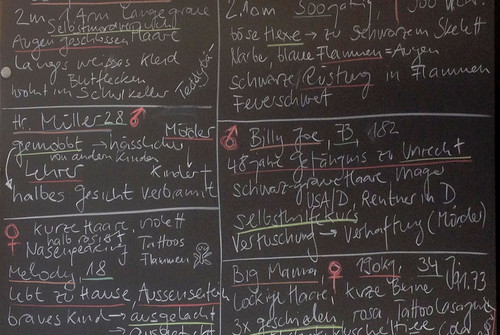 2m, 1 Arm Lange graue
Selbstmordversucht
Augen geschlossen Haare
Langes weisses Kleid
Blutflecken
wohnt im Schulkeller
Teddybär
Hr. Müller 28 ♂
gemobbt → hässlicher Mörder
von andern Kindern
Lehrer Kinder†
halbes gesicht verbrannt
♀ kurze Haare, violett
halb rasiert
Nasenpiercing Tattoos
Flammen
Melody, 18
lebt zu Hause, Aussenseiter
braves Kind → ausgelacht
2.10m 500 jährig
böse Hexe → zu Schwarzem Skelett
Narbe, blaue Flammen = Augen
schwarze Rüstung in Flammen
Feuerschwert
♂ Billy Joe, 73, 182
48 Jahre Gefängnis zu Unrecht
schwarz-graue Haare, mager
USA/D, Rentner in D
selbsthilfe
Vertuschung → Verhaftung (Mörder)
Big Mama ♀ 190kg, 34, 1.73
Lockige Haare, kurze Beine
rosa Tattoo Lasagne
3x geschieden